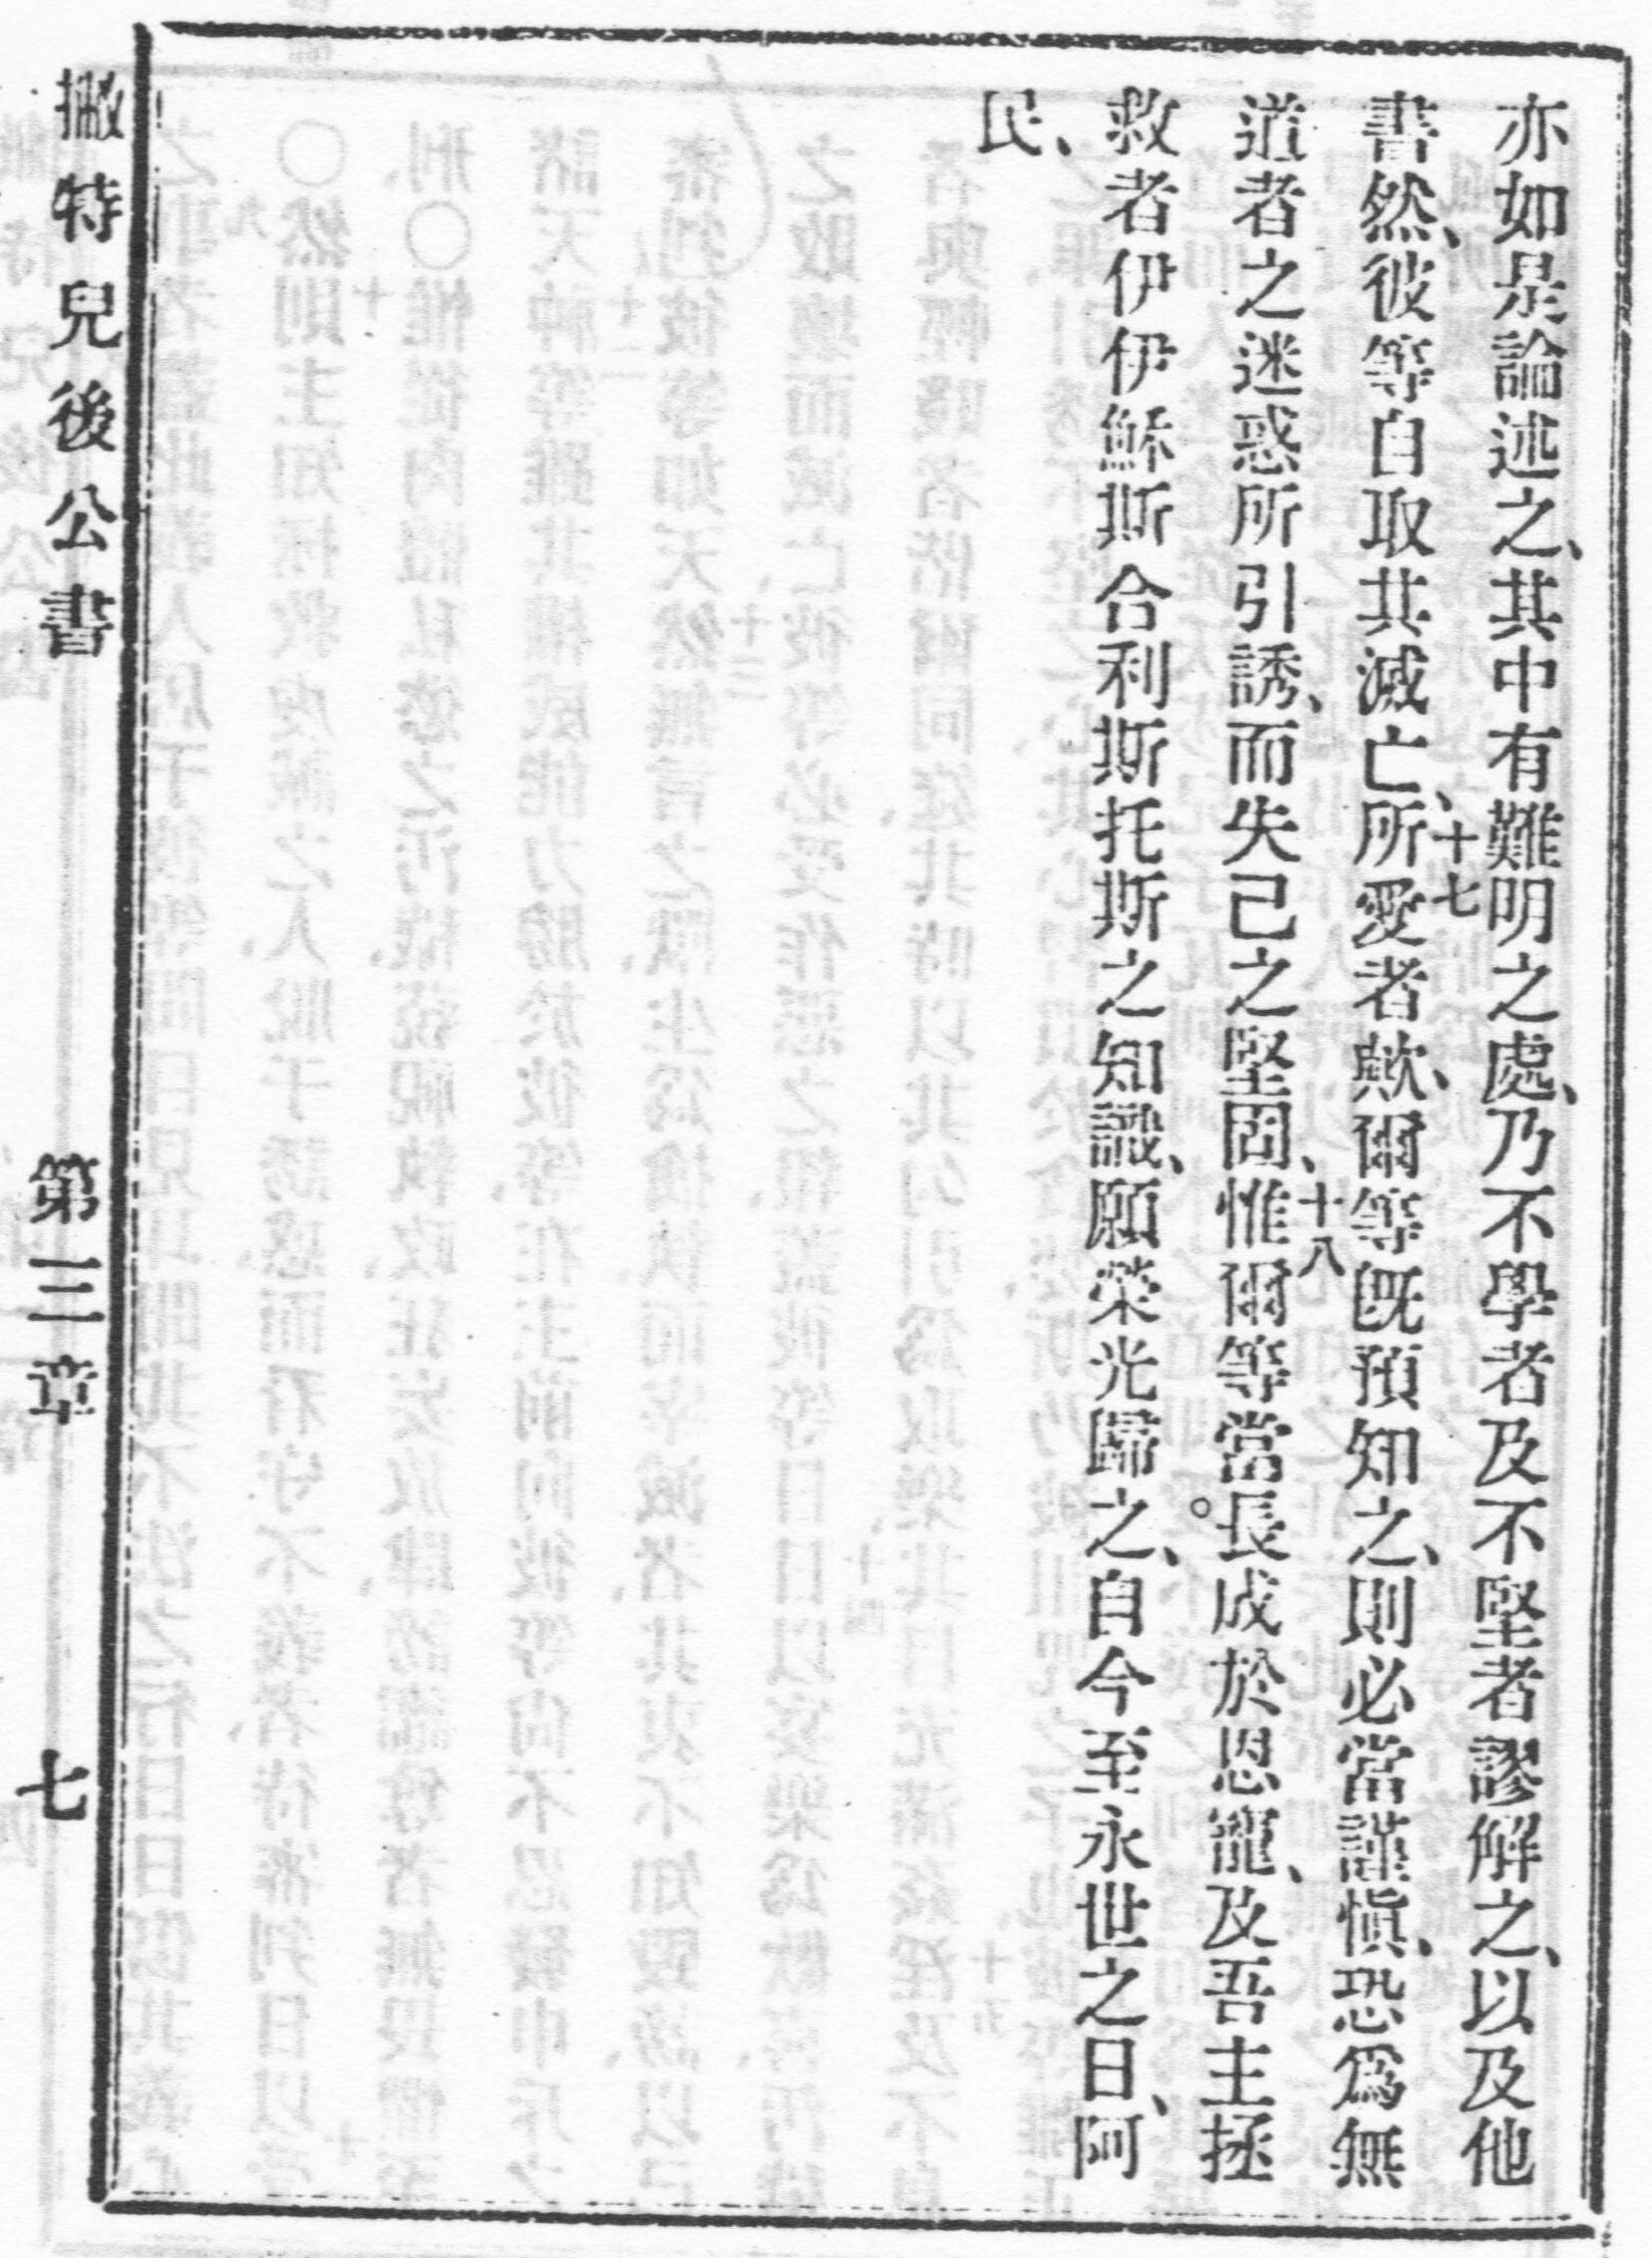 亦如是論述之、其中有難明之處、乃不學者及不堅者謬解之、以及他
書然、彼等自取其滅亡、十七所愛者歟、爾等旣預知之、則必當謹愼、恐爲無
道者之迷惑所引誘、而失己之堅固、十八惟爾等當長。成於恩寵、及吾主拯
救者伊伊穌斯合利斯托斯之知識、願榮光歸之、自今至永世之日、阿
民、
撇特兒後公書 第三章 七